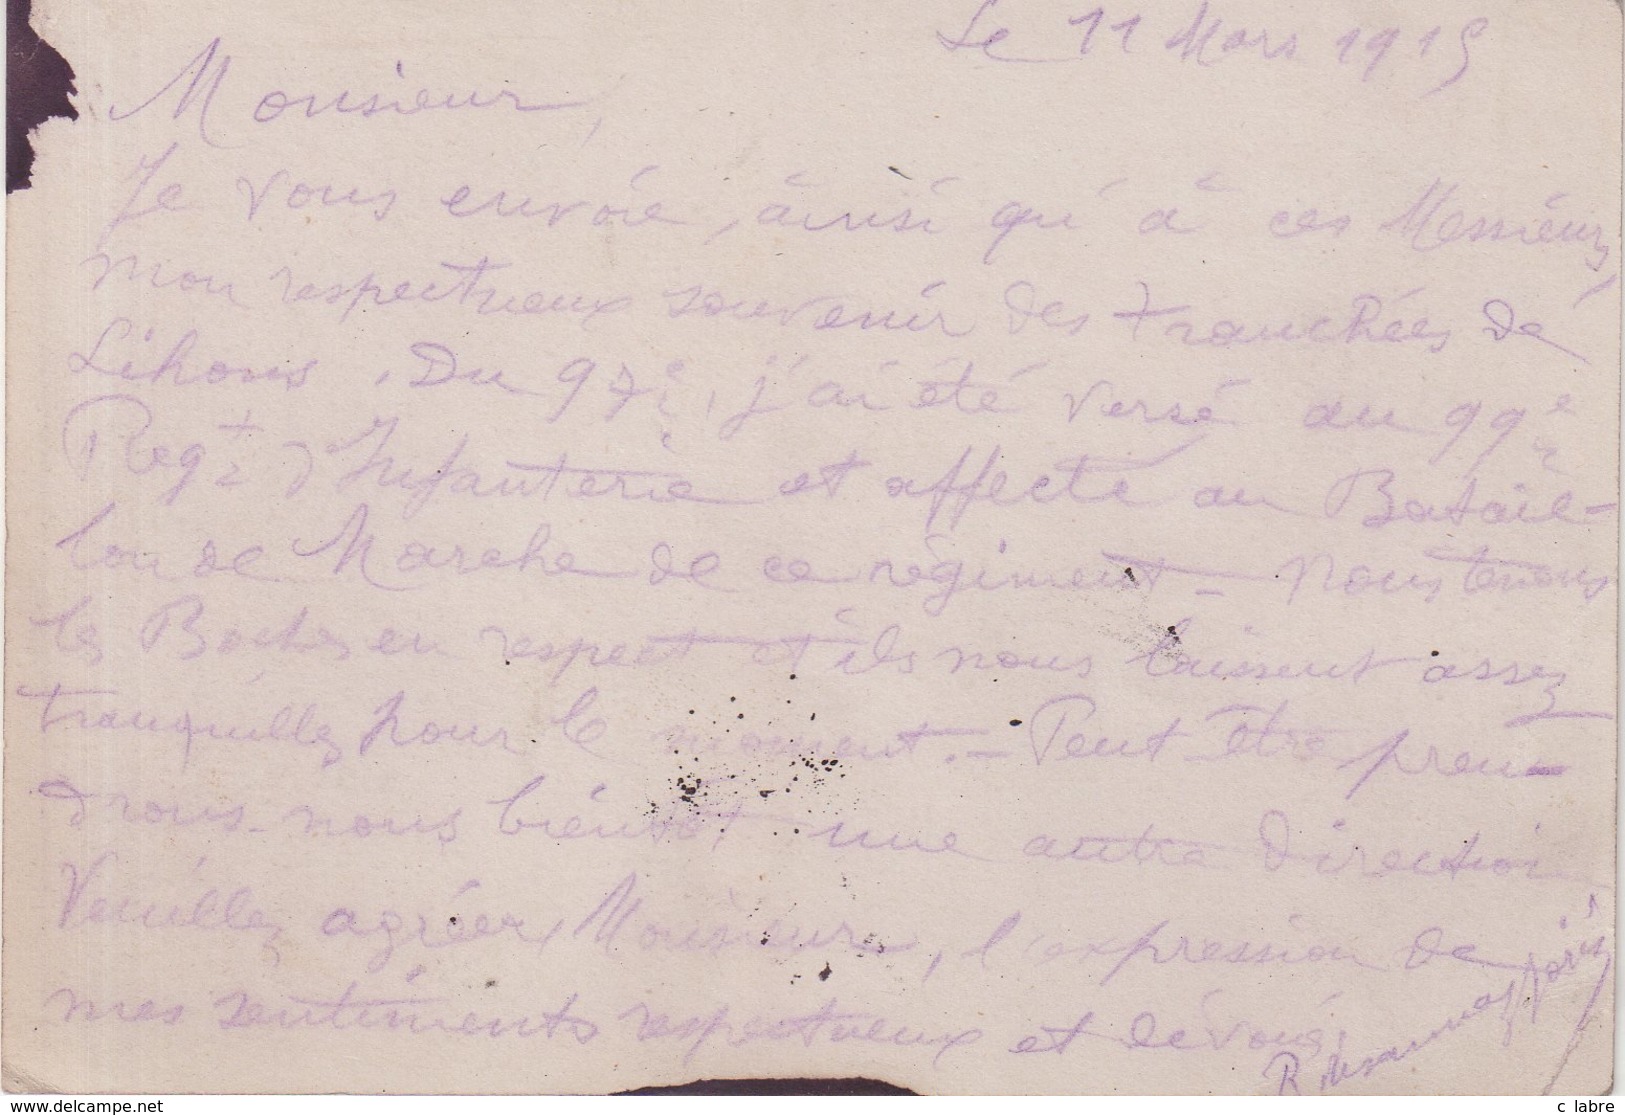 Le 11 Mars 1915
Monsieur,
Je vous envoie, ainsi qu'à ces Messieurs,
mon respectueux souvenir des tranchées de
Lihons. Du 97e, j'ai été versé au 99e
Regt d'Infanterie et affecté au Batail-
lon de Marche de ce régiment - Nous tenons
les Boches en respect et ils nous laissent assez
tranquilles pour le moment. - Peut être pren-
drons-nous bientôt une autre direction
Veuillez agréer, Monsieur, l'expression de
mes sentiments respectueux et dévoués
R
delcampe.net
c labre